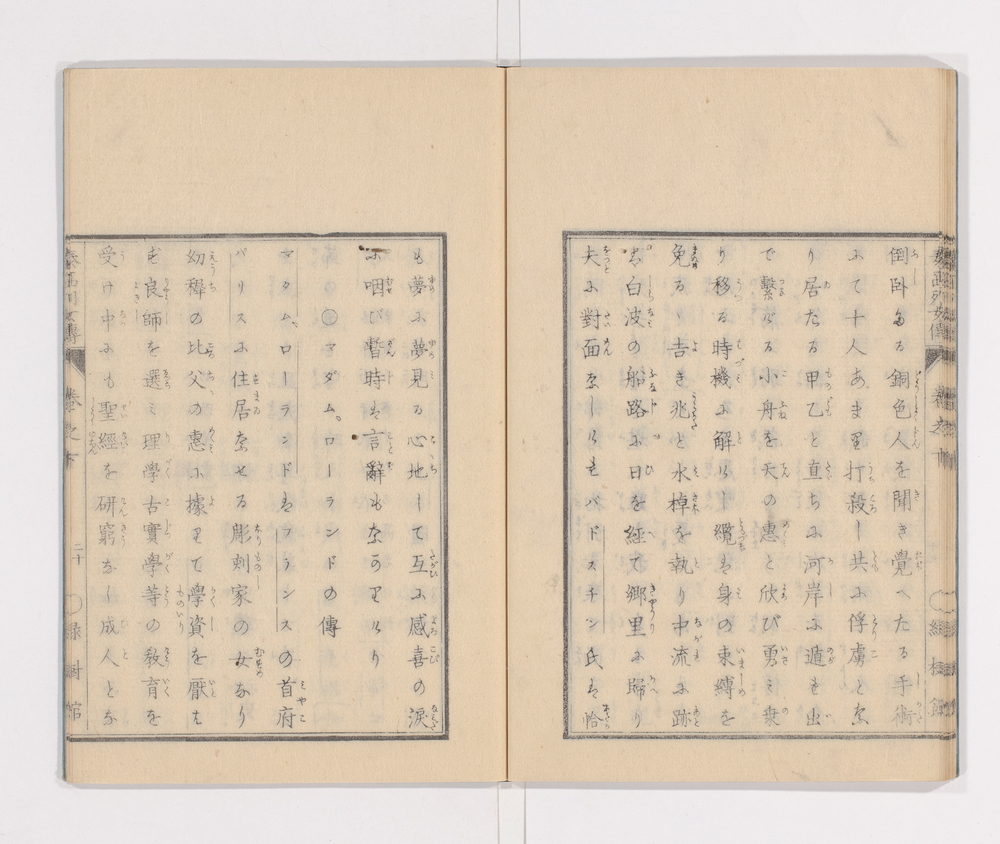 倒卧する銅色人を聞き覺へたる手術
にて十人あまり打殺し共に俘虜とな
り居たる甲乙と直ちに河岸に遁も出
で繫げる小舟を天の惠と欣び勇ミ乗
り移る時機に解けし纜も身の束縛を
免るゝ吉き兆と水棹を執り中流に跡
白波の船路に日を經て郷里に歸り
夫に對面なしけもバドスチン氏も恰
も夢に夢見る心地して互に感喜の淚
に咽び暫時も言辭もなかりけり
〇マダム。ローランドの傳
マダム。ローランドはフランスの首府
パリスに住居なせる彫刺家の女なり
幼穉の比父の惠に據りて學資を厭は
良師を選ミ理學古實學等の教育を
受け中にも聖經を研窮なし成人とな
泰西列女傳
卷之下
二十
〇綠樹館